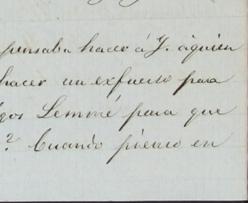 pensaba hacer á Y. á quien
hacer un exfuerto para
gos Lemmé para que
? Cuando pienso en